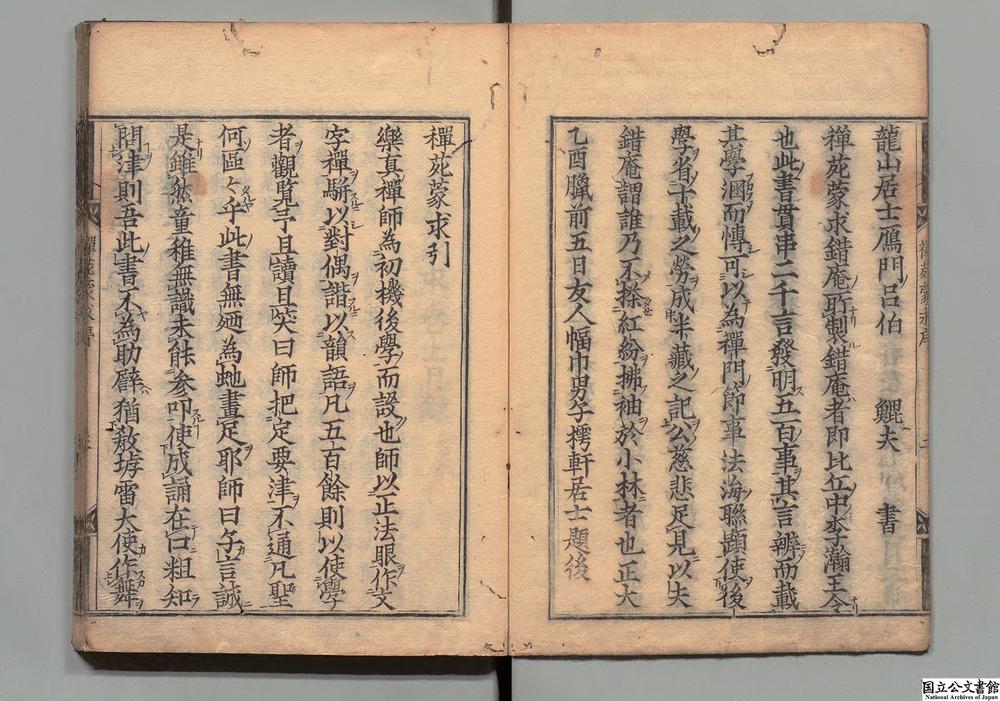 龍山居士鴈門呂伯鯤夫書
禪苑蒙求錯庵所製錯庵者即比丘中李瀚王令
也此書貫串二千言發明五百事其言辨而載
其學涸而愽可以為禪門節事法海聮顕使後
學省十載之勞成半藏之記公慈悲足見以夫
錯庵謂誰乃不搽紅紛拂袖於小林者也正大
乙酉臘前五日友人幅巾男子樗軒居士題後
禪苑蒙求引
樂真禪師為初機後學而設也師以正法眼作文
字禪駢以對偶諧以韻語凡五百餘則以使學
者觀覧予且讀且笑曰師把定要津不通凡聖
何區〻乎此書無廼為虵畫足耶師曰予言誠
是雖然童稚無識未能参叩使成誦在口粗知
問津則吾此書不為助僻猶教坊雷大使作舞
国立公文書館
National Archives of Japan